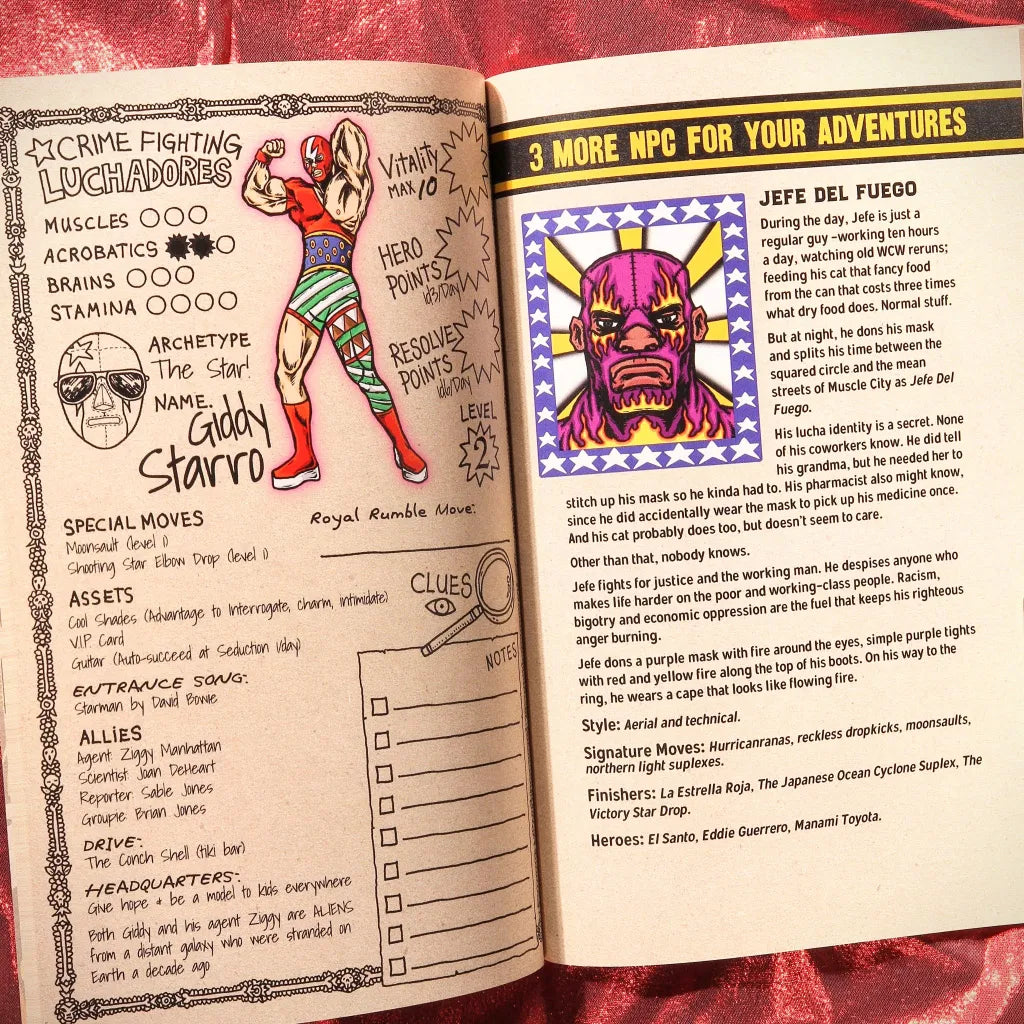 CRIME FIGHTING
LUCHADORES
MUSCLES
ACROBATICS
BRAINS
STAMINA
Vitality
MAX 10
HERO
POINTS
1d3/Day
RESOLVE
POINTS
1d6/Day
LEVEL
2
ARCHETYPE
The Star!
NAME.
Giddy
Starro
SPECIAL MOVES
Moonsault (level 1)
Shooting Star Elbow Drop (level 1)
Royal Rumble Move:
ASSETS
Cool Shades (Advantage to Interrogate, charm, intimidate)
V.I.P. Card
Guitar (Auto-succeed at Seduction 1/day)
ENTRANCE SONG:
Starman by David Bowie
ALLIES
Agent: Ziggy Manhattan
Scientist: Joan DeHeart
Reporter: Sable Jones
Groupie: Brian Jones
DRIVE:
The Conch Shell (tiki bar)
HEADQUARTERS:
Give hope & be a model to kids everywhere
Both Giddy and his agent Ziggy are ALIENS
from a distant galaxy who were stranded on
Earth a decade ago
CLUES
NOTES
3 MORE NPC FOR YOUR ADVENTURES
JEFE DEL FUEGO
During the day, Jefe is just a
regular guy –working ten hours
a day, watching old WCW reruns;
feeding his cat that fancy food
from the can that costs three times
what dry food does. Normal stuff.
But at night, he dons his mask
and splits his time between the
squared circle and the mean
streets of Muscle City as Jefe Del
Fuego.
His lucha identity is a secret. None
of his coworkers know. He did tell
his grandma, but he needed her to
stitch up his mask so he kinda had to. His pharmacist also might know,
since he did accidentally wear the mask to pick up his medicine once.
And his cat probably does too, but doesn't seem to care.
Other than that, nobody knows.
Jefe fights for justice and the working man. He despises anyone who
makes life harder on the poor and working-class people. Racism,
bigotry and economic oppression are the fuel that keeps his righteous
anger burning.
Jefe dons a purple mask with fire around the eyes, simple purple tights
with red and yellow fire along the top of his boots. On his way to the
ring, he wears a cape that looks like flowing fire.
Style: Aerial and technical.
Signature Moves: Hurricanranas, reckless dropkicks, moonsaults,
northern light suplexes.
Finishers: La Estrella Roja, The Japanese Ocean Cyclone Suplex, The
Victory Star Drop.
Heroes: El Santo, Eddie Guerrero, Manami Toyota.